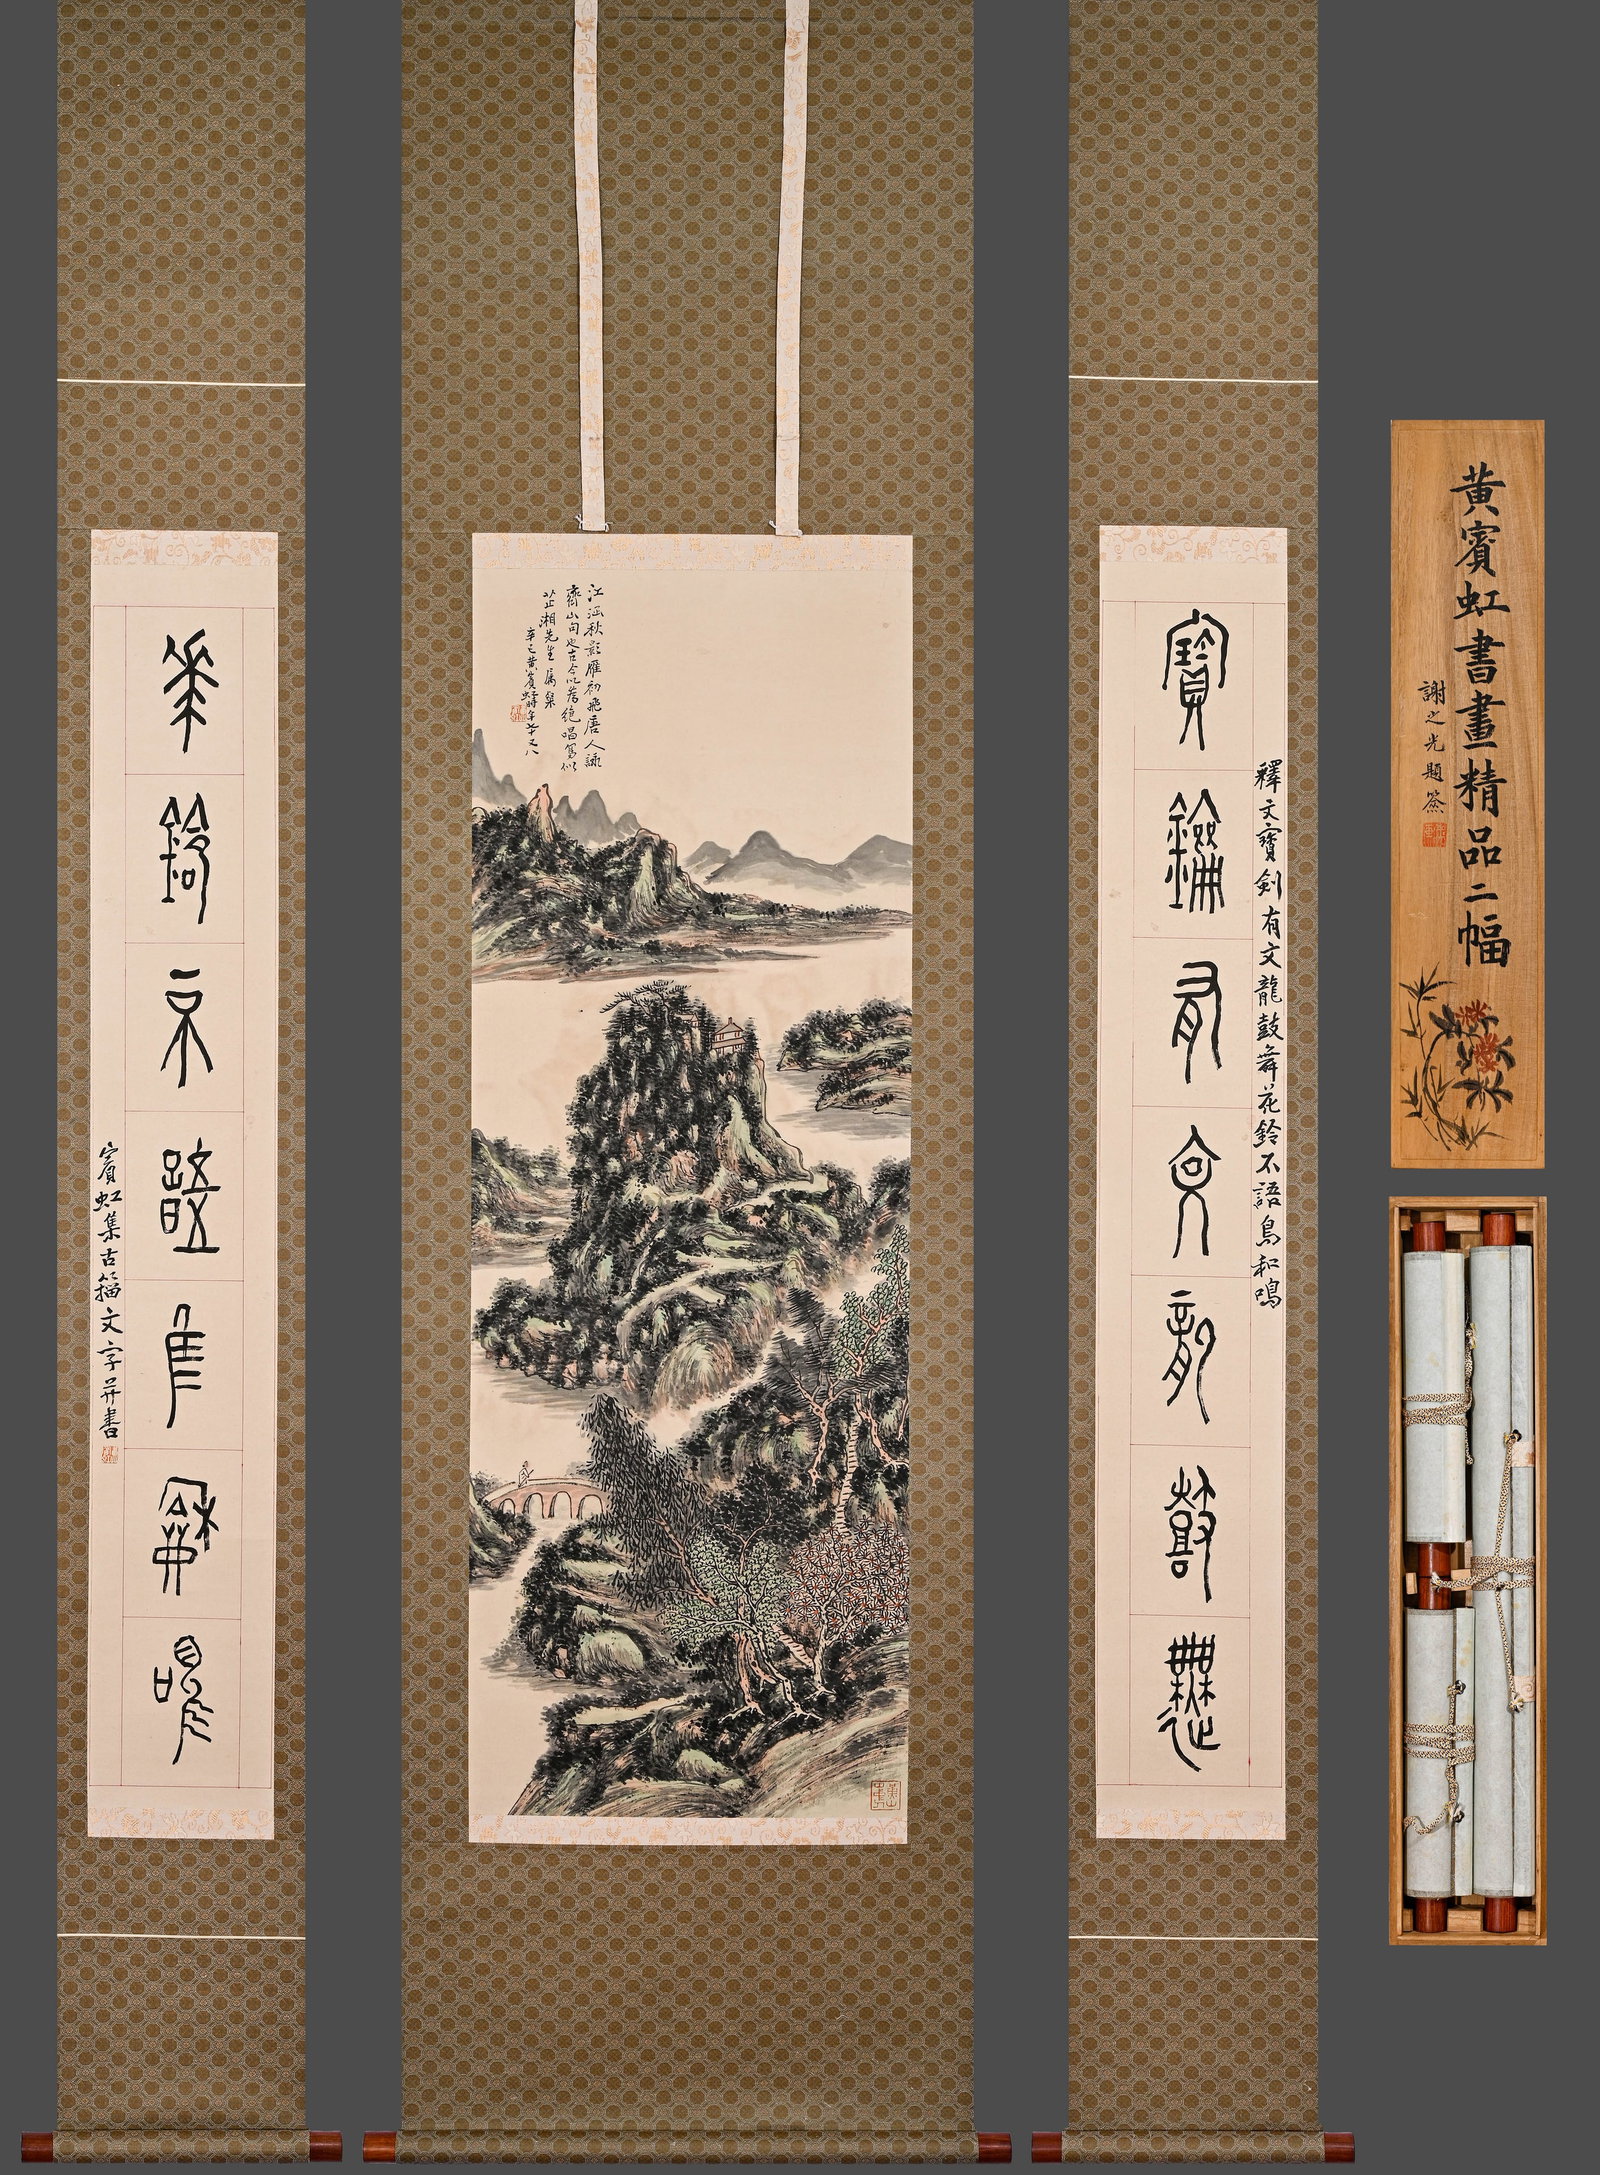 寶劍有文龍鼓舞
釋文寶劍有文龍鼓舞花鈴不語鳥和鳴
江涵秋影雁初飛唐人詠
齊山句也古今以為絕唱寫似
芷湘先生屬粲
辛巳黃賓虹時年七十又八
華鈴不語隹龢鳴
賓虹集古籀文字并書
黃賓虹書畫精品二幅
謝之光題簽